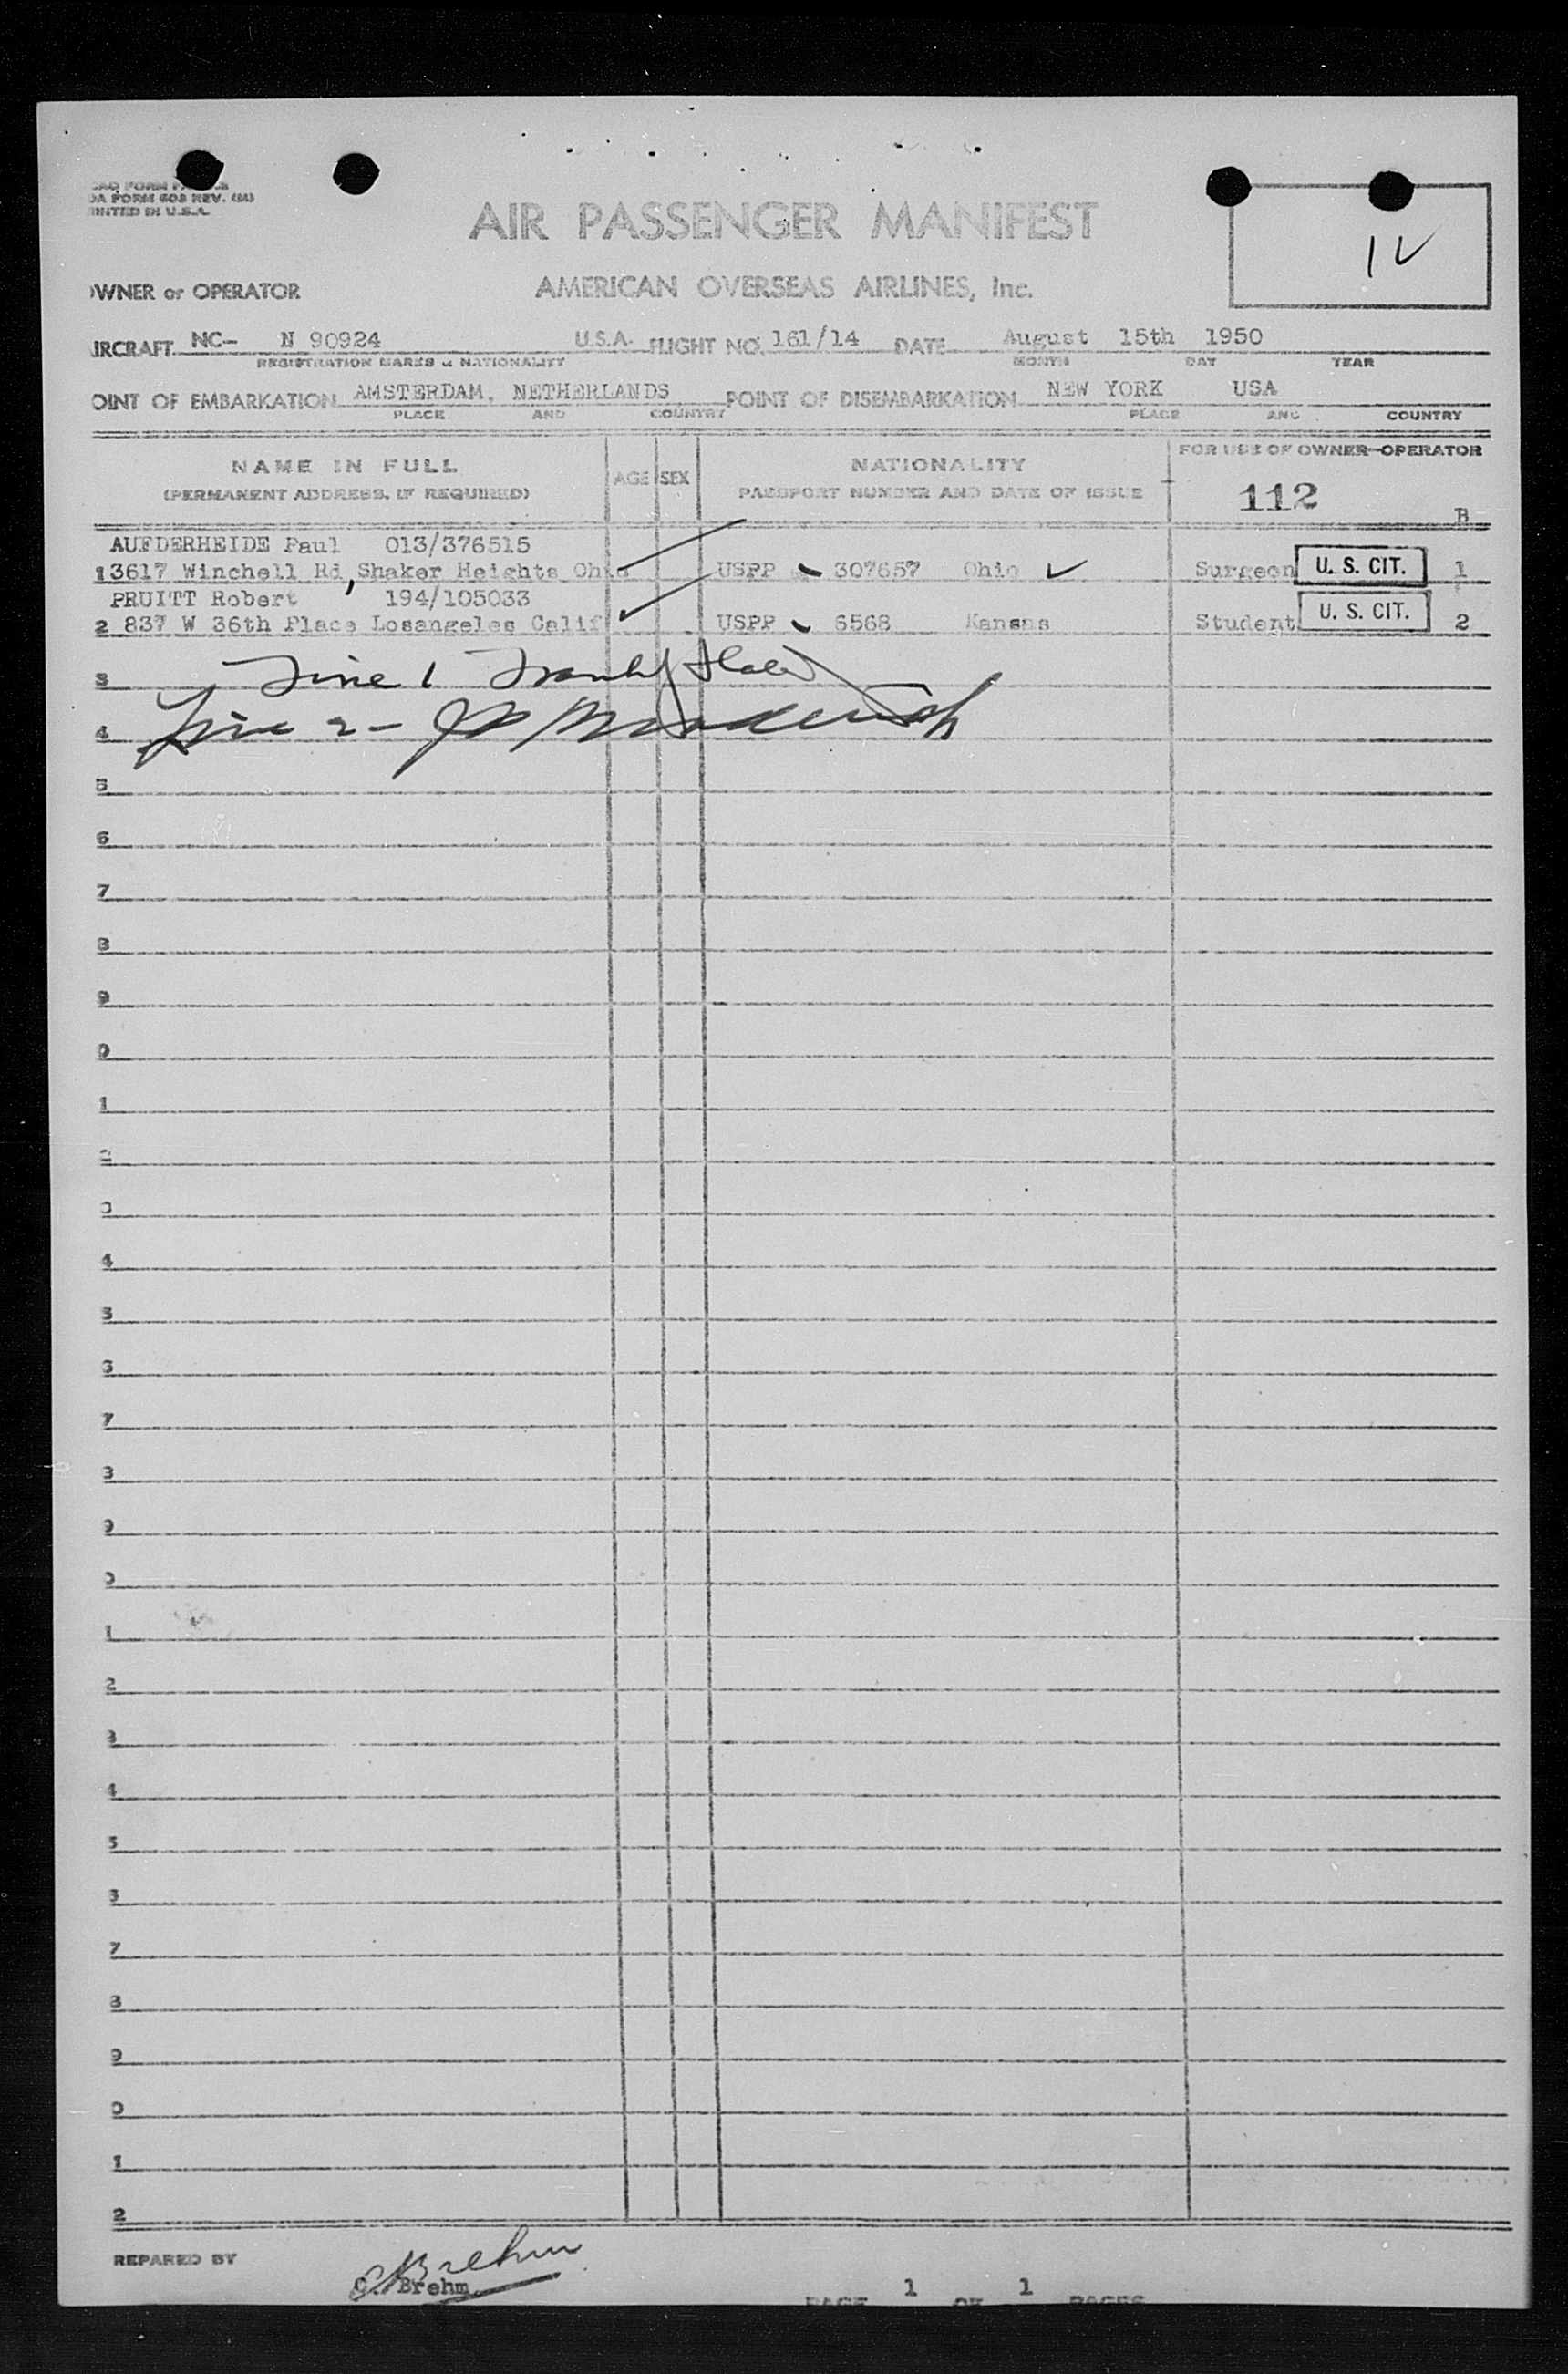 FORM
DA FORM 608 REV.
INTED IN U.S.A.
AIR PASSENGER MANIFEST
1
WNER or OPERATOR AMERICAN OVERSEAS AIRLINES, Inc.
IRCRAFT NC- N 90924 U.S.A. FLIGHT NO. 161/14 DATE August 15th 1950
REGISTRATION MARKS & NATIONALITY MONTH DAY YEAR
OINT OF EMBARKATION AMSTERDAM, NETHERLANDS POINT OF DISEMBARKATION NEW YORK USA
PLACE AND COUNTRY PLACE AND COUNTRY
NAME IN FULL AGE SEX NATIONALITY FOR USE OF OWNER-OPERATOR
(PERMANENT ADDRESS, IF REQUIRED) PASSPORT NUMBER AND DATE OF ISSUE 112 B
AUFDERHEIDE Paul 013/376515
1 3617 Winchell Rd, Shaker Heights Ohio USPP 307657 Ohio Surgeon U. S. CIT. 1
PRUITT Robert 194/105033
2 837 W 36th Place Losangeles Calif USPP 6568 Kansas Student U. S. CIT. 2
3 Line 1
4 Line 2 -
5
6
7
8
9
0
1
2
3
4
5
6
7
8
9
0
1
2
3
4
5
6
7
8
9
0
1
2
REPARED BY CBrehm
C. Brehm
PAGE 1 OF 1 PAGES